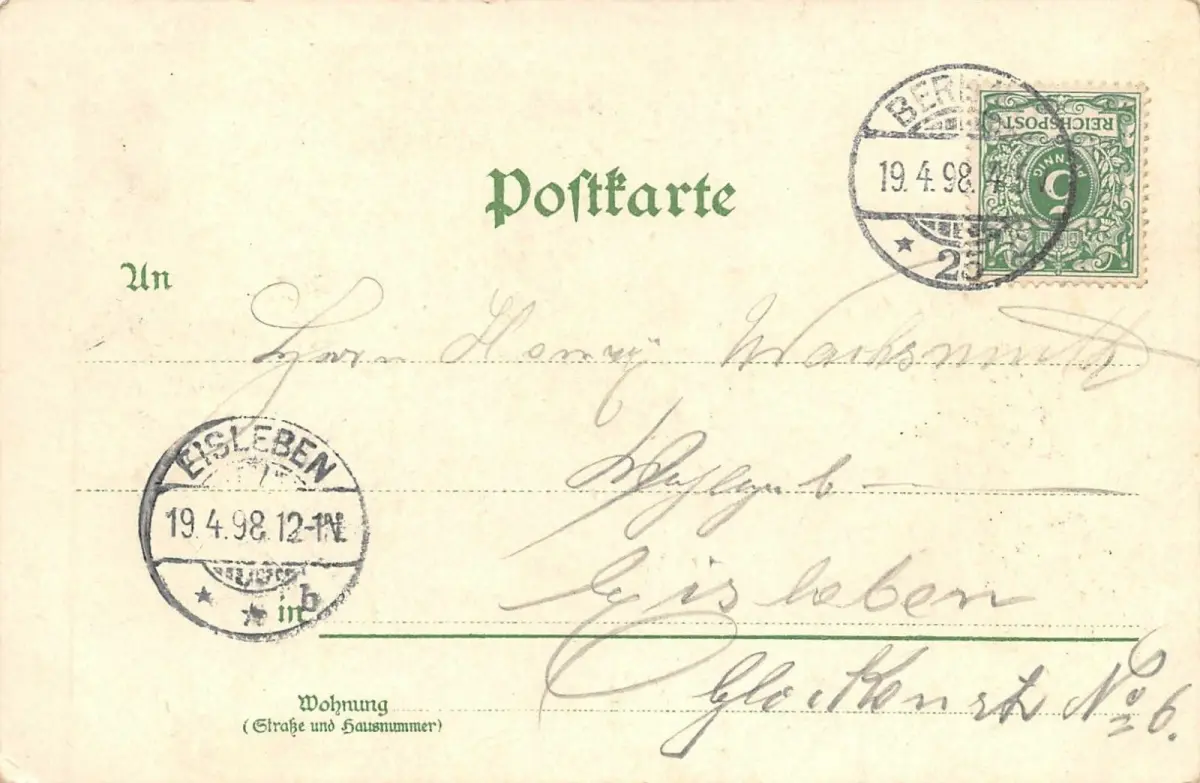 Postkarte
BERLIN
19.4.98. 4-5
* 25
REICHSPOST
5
PFENNIG
An
Herrn Wachsmuth
Wohlgeb
EISLEBEN
19.4.98.12-1N.
* * b
in Eisleben
Wohnung
(Straße und Hausnummer)
Glockenstr No 6.